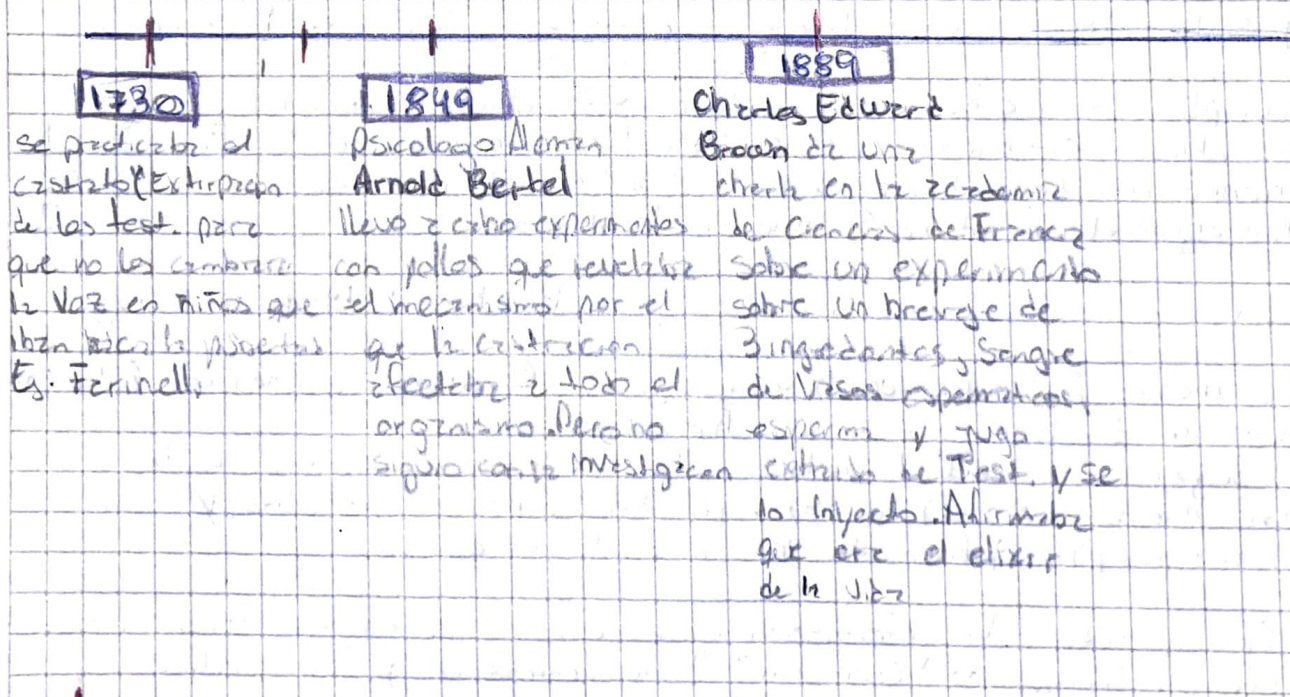 1730
se practicaba el
castrato (Extirpación
de los test. para
que no les cambiara
la voz en niños que
iban
Ej. Farinelli
1849
Psicologo Aleman
Arnold Bertel
llevo a cabo experimentos
con pollos que revelaba
el mecanismo por el
que la castracion
afectaba a todo el
organismo. Pero no
siguio con la investigacion
1889
Charles Edward
Brown da una
charla en la academia
de Ciencias de Francia
sobre un experimento
sobre un brevaje de
3 ingredientes, Sangre
de Vasos espermaticos,
esperma y jugo
extraido de Test. y se
lo inyecto. Afirmaba
que era el elixir
de la vida